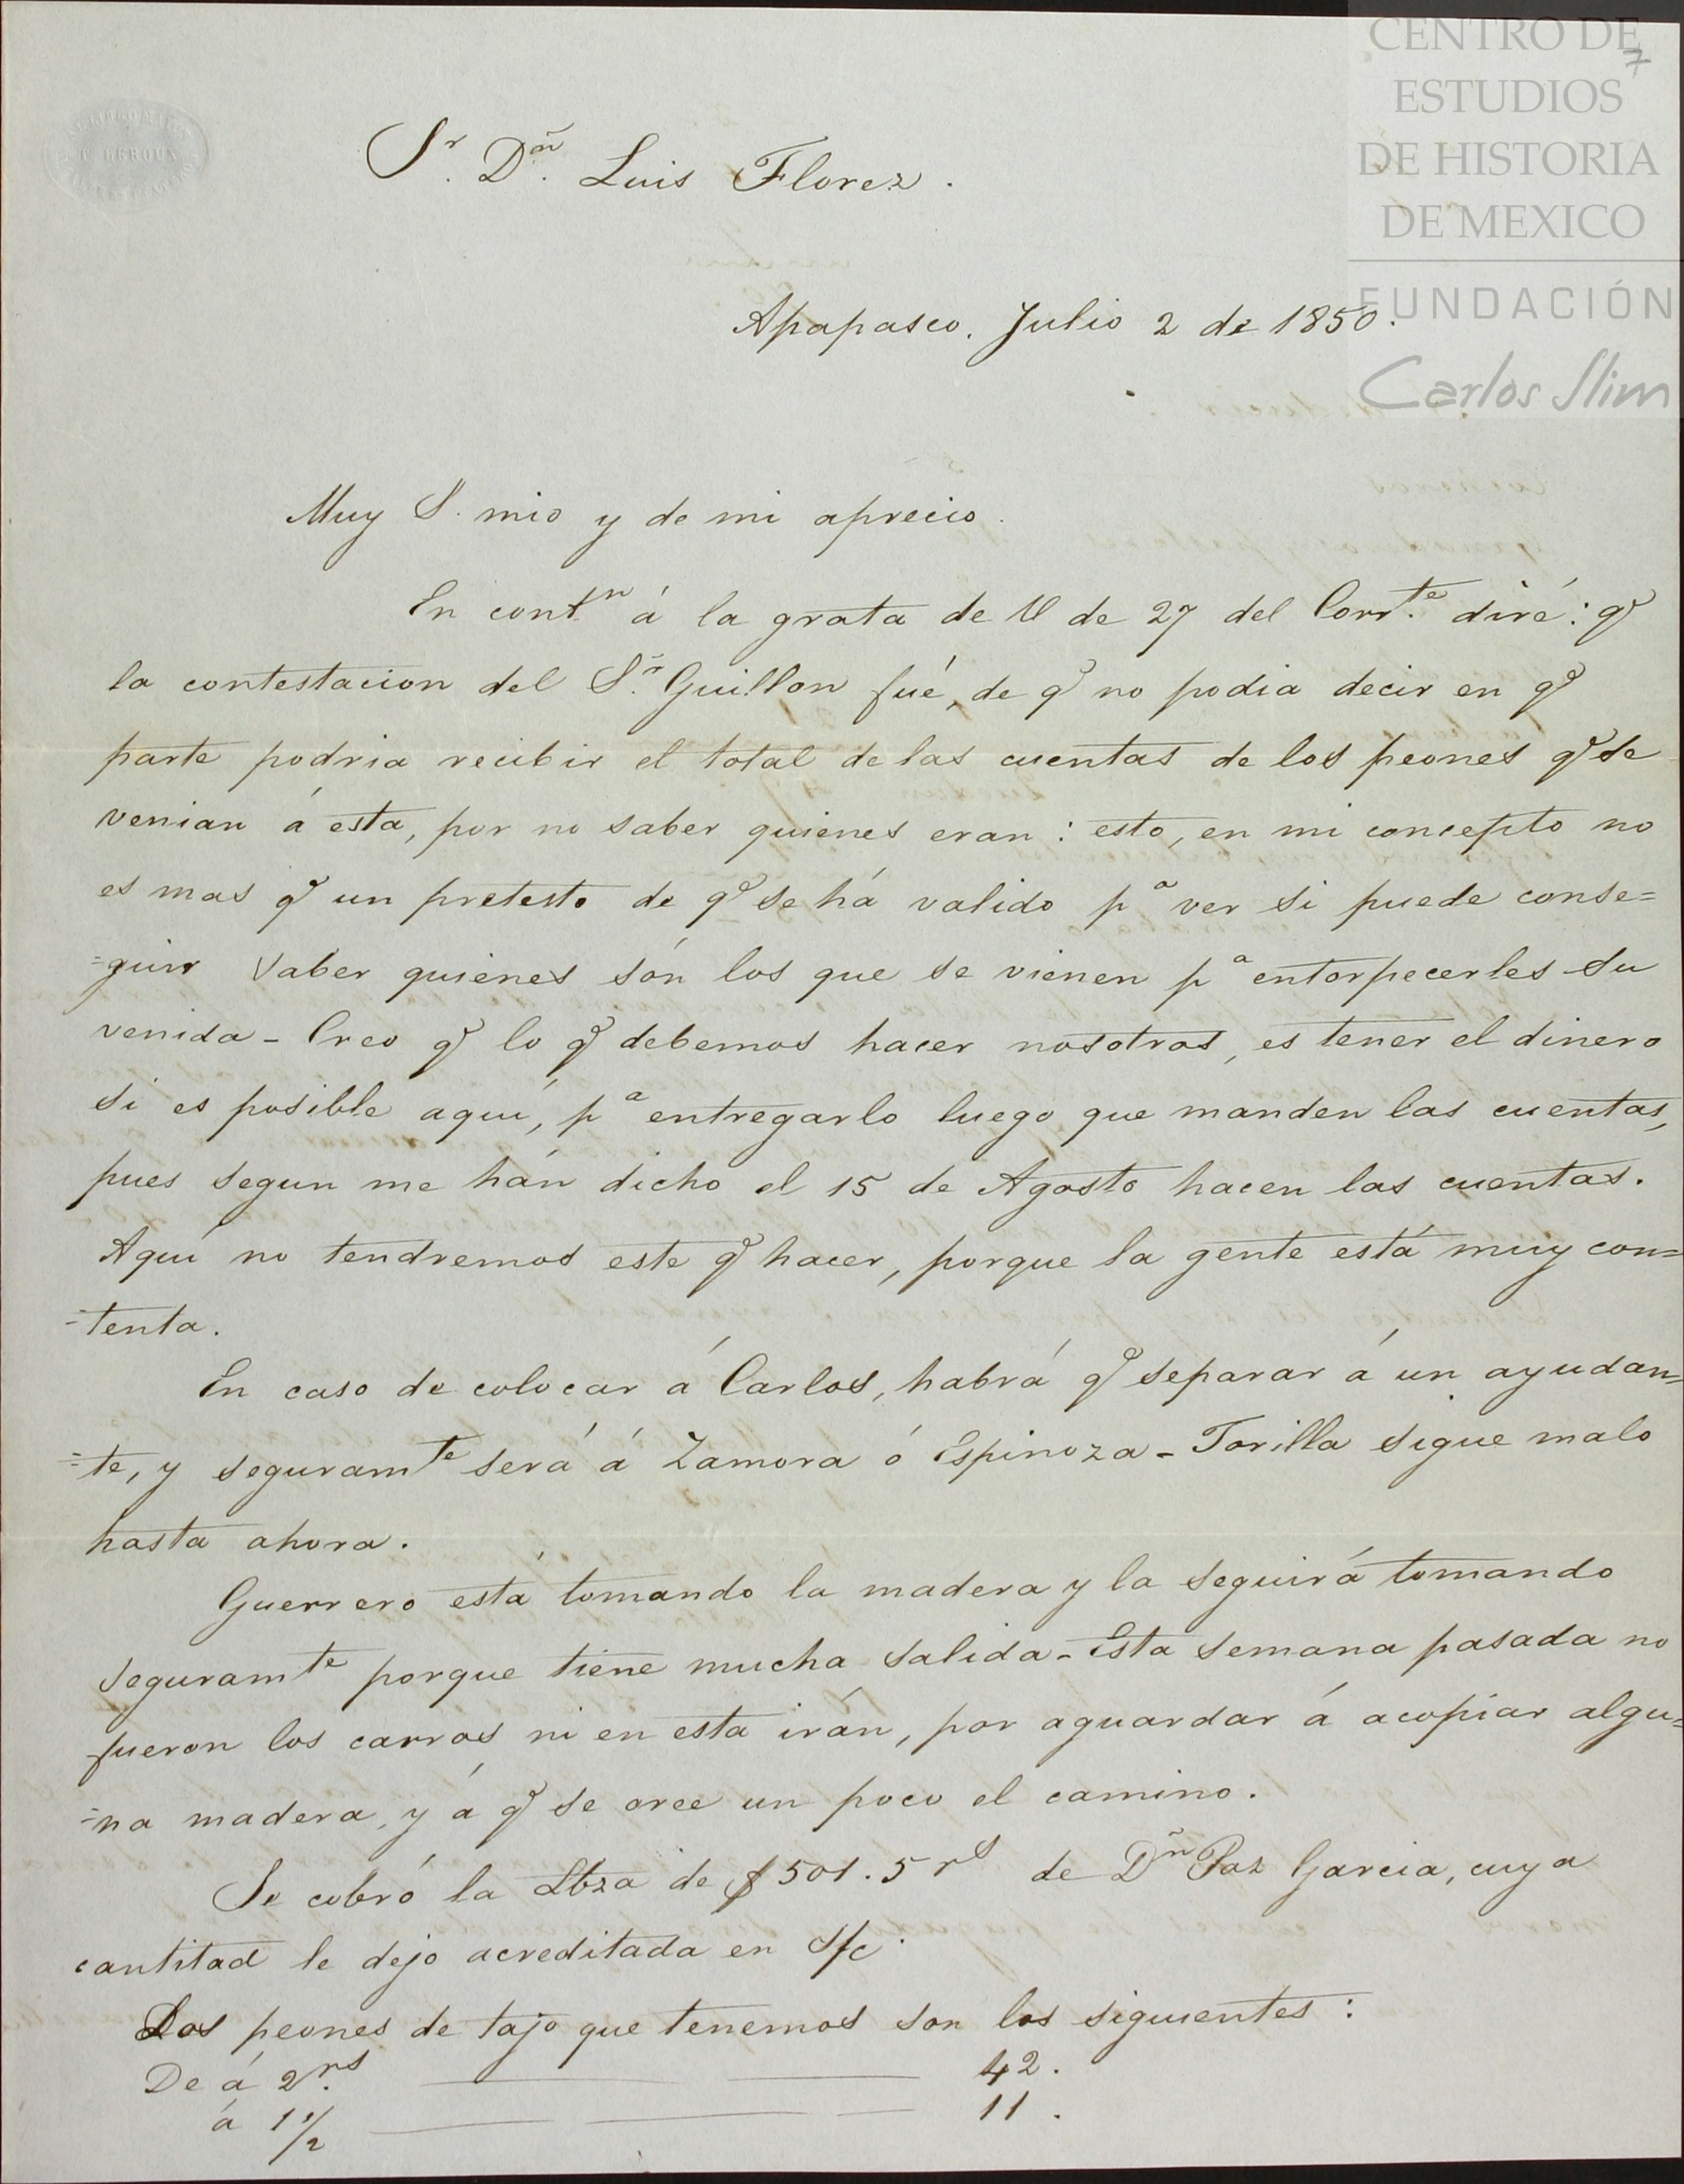 CENTRO DE
ESTUDIOS
DE HISTORIA
DE MEXICO
FUNDACIÓN
Carlos Slim
7
LEROUX
Sr. Dn. Luis Florez.
Apapasco. Julio 2 de 1850.
Muy S. mio y de mi aprecio.
En contn á la grata de U de 27 del Corrte. diré: q̃
la contestacion del Sr. Guillon fué, de q̃ no podia decir en q̃
parte podria recibir el total de las cuentas de los peones q̃ se
venian á esta, por no saber quienes eran: esto, en mi concepto no
es mas q̃ un pretesto de q̃ se há valido pa ver si puede conse=
=guir saber quienes són los que se vienen pa entorpecerles su
venida - Creo q̃ lo q̃ debemos hacer nosotros, es tener el dinero
si es posible aquí, pa entregarlo luego que manden las cuentas,
pues segun me hán dicho el 15 de Agosto hacen las cuentas.
Aquí no tendremos este q̃ hacer, porque la gente está muy con=
=tenta.
En caso de colocar á Carlos, habrá q̃ separar á un ayudan=
=te, y seguramte será á Zamora ó Espinoza - Torilla sigue malo
hasta ahora.
Guerrero está tomando la madera y la seguirá tomando
seguramte porque tiene mucha salida - Esta semana pasada no
fueron los carros ni en esta irán, por aguardar á acopiar algu=
=na madera, y á q̃ se oree un poco el camino.
Se cobró la Lbza de $501.5 rs de Dn Paz Garcia, cuya
cantitad le dejo acreditada en s/c.
Los peones de tajo que tenemos son los siguientes:
De á 2 rs. 42.
á 1 1/2 11.